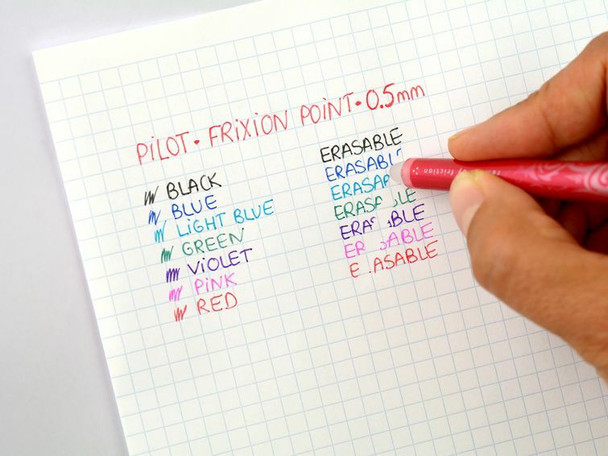 PiLOT • FRiXiON POiNT • 0.5mm
BLACK
BLUE
LiGHT BLUE
GREEN
ViOLET
PiNK
RED
ERASABLE
ERASABL
ERASAB
ERASABLE
ERA BLE
ER SABLE
E ASABLE
friction